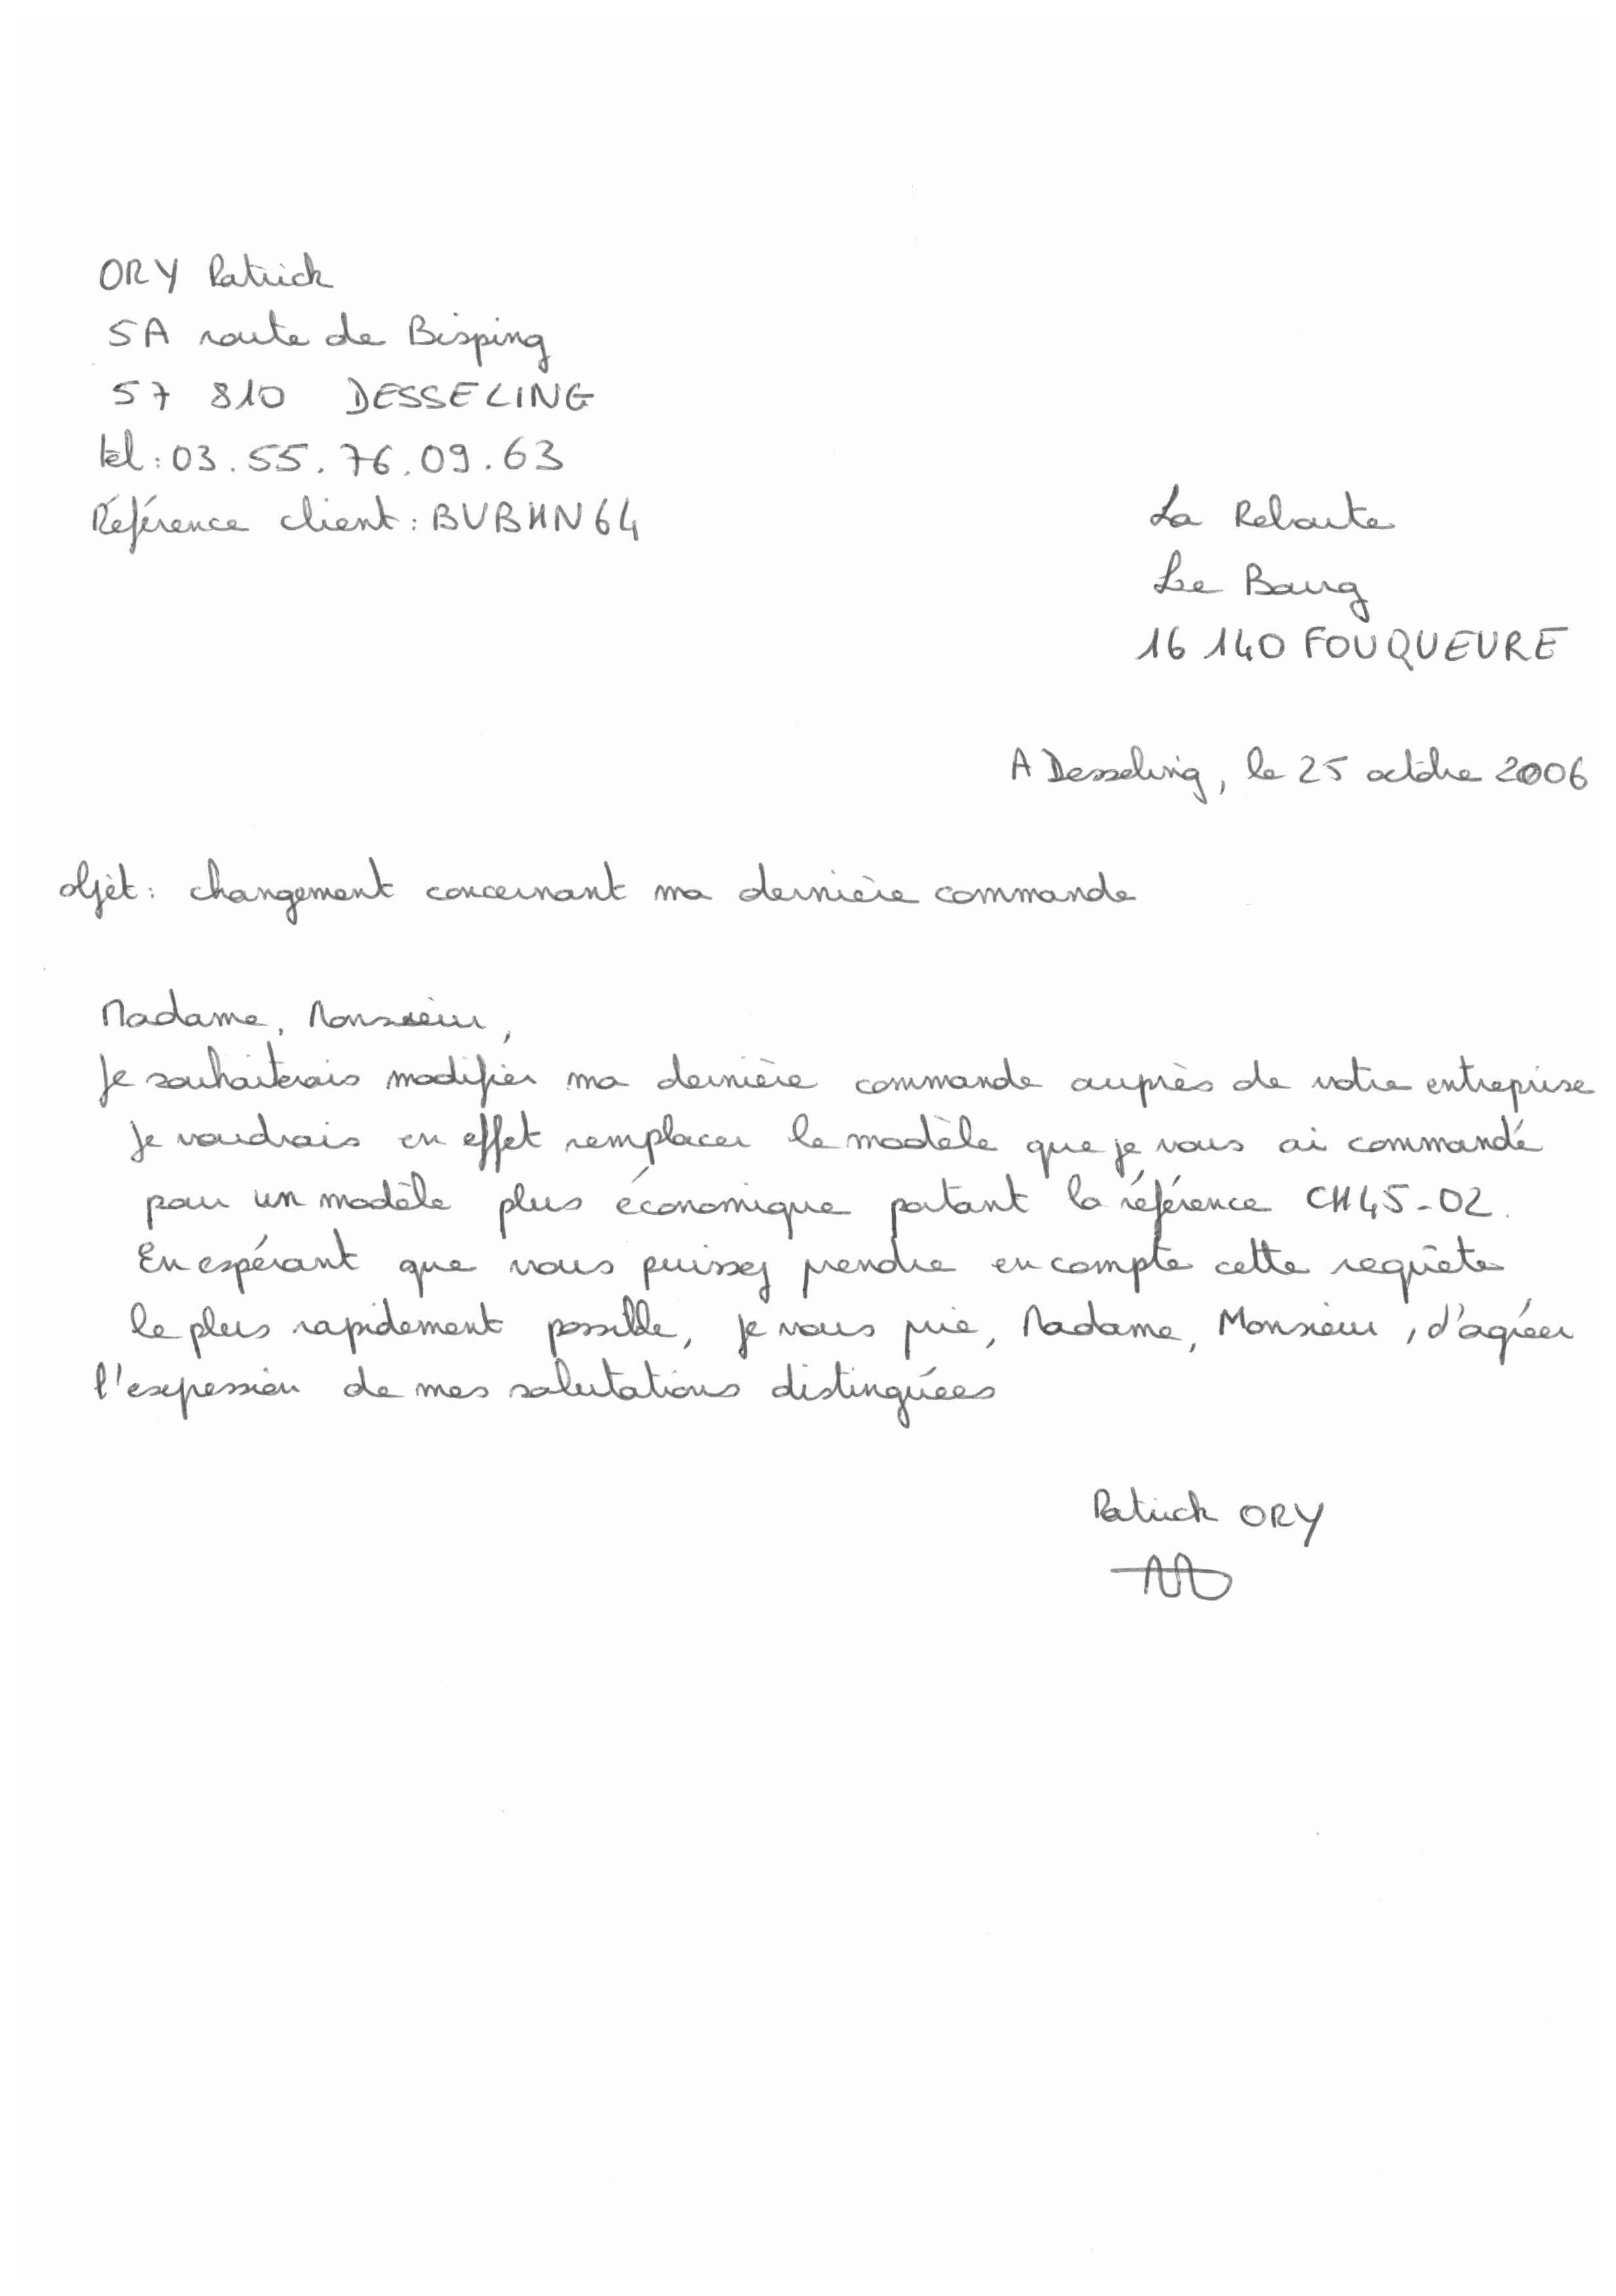 ORY Patrick
5A route de Bisping
57 810 DESSELING
tel : 03.55.76.09.63
Référence client : BVBHN64
La Reboute
Le Bourg
16 140 FOUQUEURE
A Desseling, le 25 octobre 2006
objèt : changement concernant ma dernière commande
Madame, Monsieur,
Je souhaiterais modifier ma dernière commande auprès de votre entreprise
Je voudrais en effet remplacer le modèle que je vous ai commandé
pour un modèle plus économique portant la référence CH45-02.
En espérant que vous puissez prendre en compte cette requête
le plus rapidement possible, je vous prie, Madame, Monsieur, d'agréer
l'expression de mes salutations distinguées
Patrick ORY